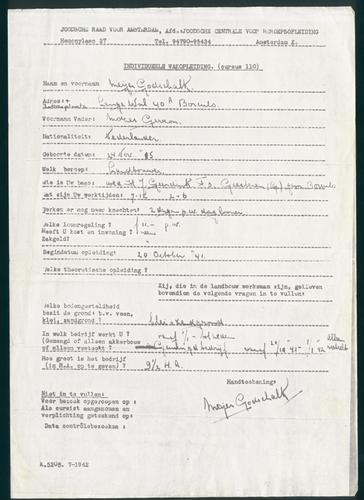 JOODSCHE RAAD VOOR AMSTERDAM, Afd. JOODSCHE CENTRALE VOOR BEROEPSOPLEIDING
Hemonylaan 27 Tel. 94790-95434 Amsterdam Z.
INDIVIDUEELE VAKOPLEIDING. (cursus 110)
Naam en voornaam Meijer Godschalk
Adres: + Lange Wal 40A Borculo
Voornaam Vader: Mozes
Nationaliteit: Nederlander
Geboorte datum: Nov. '85
Welk beroep: Landbouwer
Wie is Uw baas: Borculo
Wat zijn Uw werktijden: 7-12 2-6
Werken er nog meer knechten:
Welke loonregeling ?
Heeft U kost en inwoning ?
Zakgeld?
Begindatum opleiding: 20 October '41.
Welke theoretische opleiding ?
Zij, die in de landbouw werkzaam zijn, gelieven
bovendien de volgende vragen in te vullen:
Welke bodemgesteldheid
bezit de grond: b.v. veen,
klei, zandgrond ?
In welk bedrijf werkt U ?
(Gemengd of alleen akkerbouw
of alleen veeteelt) Gemengd bedrijf vanaf 20/10 '41 - 1/1 '42
Hoe groot is het bedrijf
(in H.A. op te geven) 9½ H.A.
Handteekening:
Meijer Godschalk
Niet in te vullen:
Voor bezoek opgeroepen op :
Als cursist aangenomen en
verplichting geteekend op:
Data contrôlebezoeken :
A.5298. 7-1942